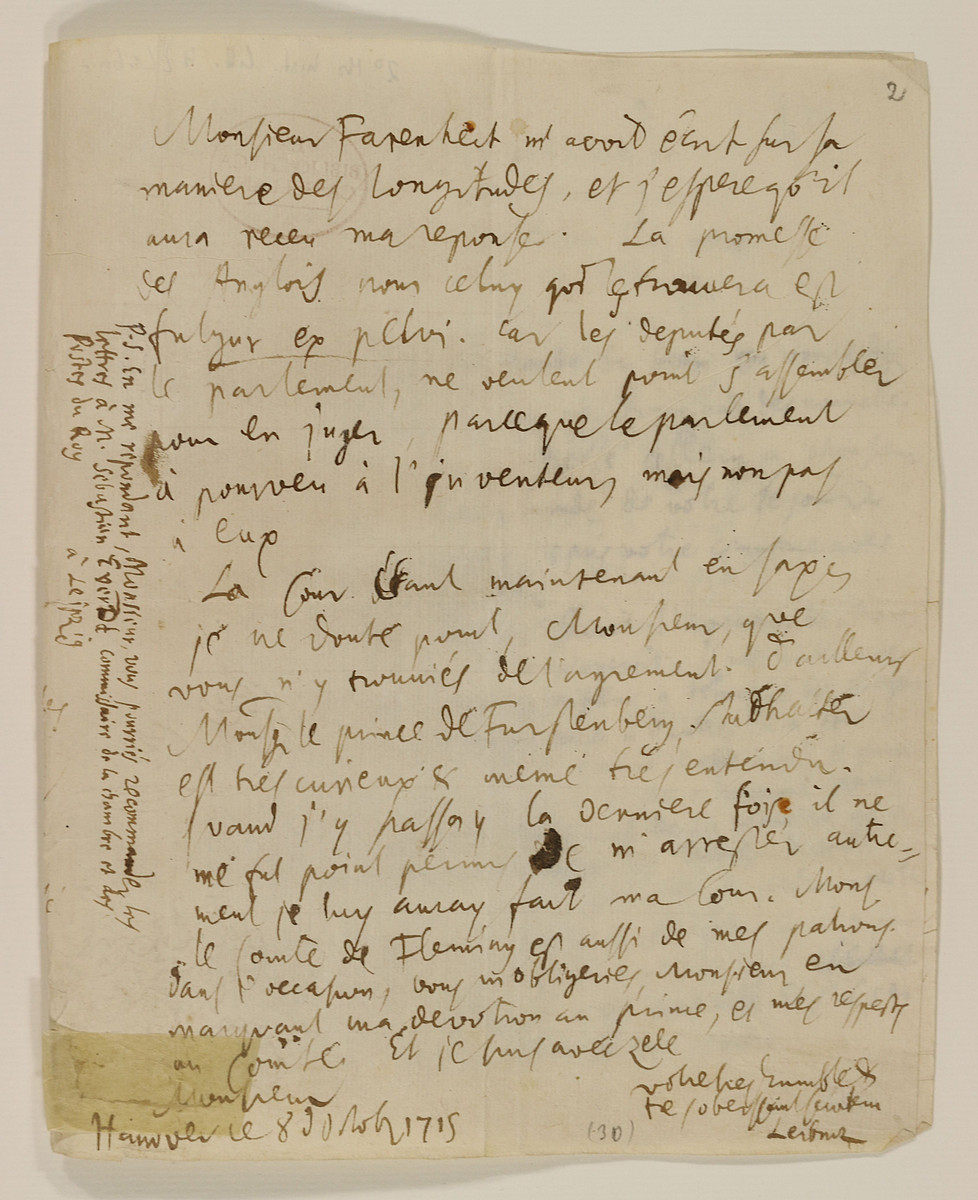 2
Monsieur Farenheit m'avoit écrit sur sa
maniere des longitudes, et j'espere qu'il
aura receu ma reponse. La promesse
des Anglois pour celuy qui le trouvera est
fulgur ex pelvi. Car les deputés par
le parlement, ne veulent point s'assembler
pour en juger, parceque le parlement
à pourveu à l'inventeur, mais non pas
à eux
La Cour étant maintenant en Saxe,
je ne doute point, Monsieur, que
vous n'y trouviés de l'agrement. d'ailleurs
Monsgr le prince de Furstenberg, Stadhalter
est tres curieux & même tres entendu.
quand j'y passay la derniere fois, il ne
me fut point permis de m'arrester autre-
ment je luy auray fait ma Cour. Mons
le Comte de Fleming est aussi de mes patrons.
dans l'occasion, vous m'obligeries, Monsieur en
marquant ma devotion au prince, et mes respects
au Comte. Et je suis avec zele
Monsieur
votre tres humble &
tres obeissant serviteur
Leibniz
Hanover ce 8 d'Octobr 1715
(30)
P.S. En me repondant, Monsieur, vous pourriés recommander les
lettres à M. Sebastien Evert commissaire de la chambre et des
Postes du Roy à Leipzig